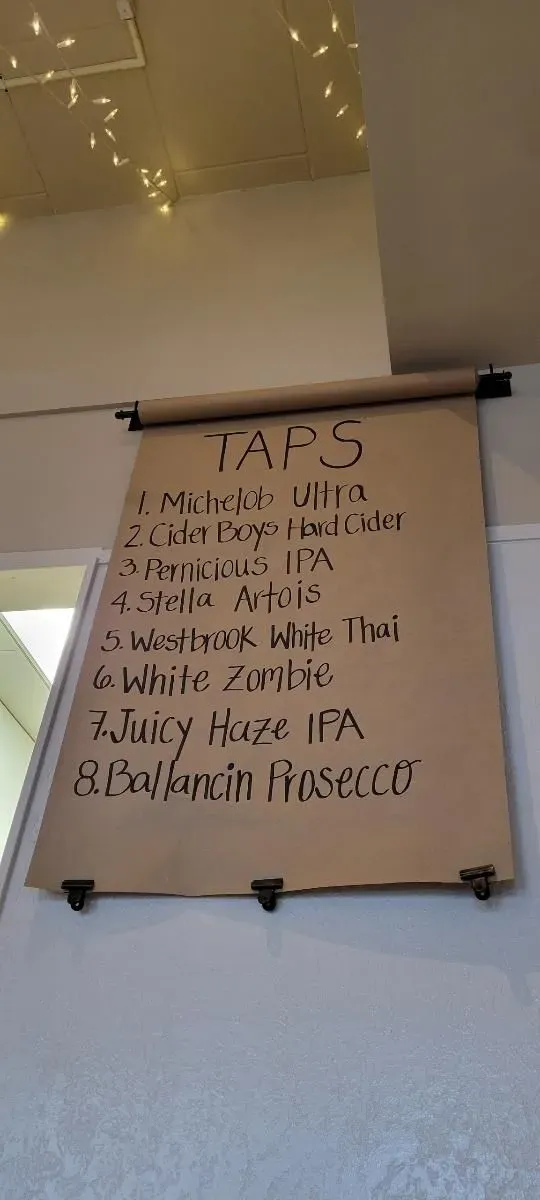 TAPS
1. Michelob Ultra
2. Cider Boys Hard Cider
3. Pernicious IPA
4. Stella Artois
5. Westbrook White Thai
6. White Zombie
7. Juicy Haze IPA
8. Ballancin Prosecco